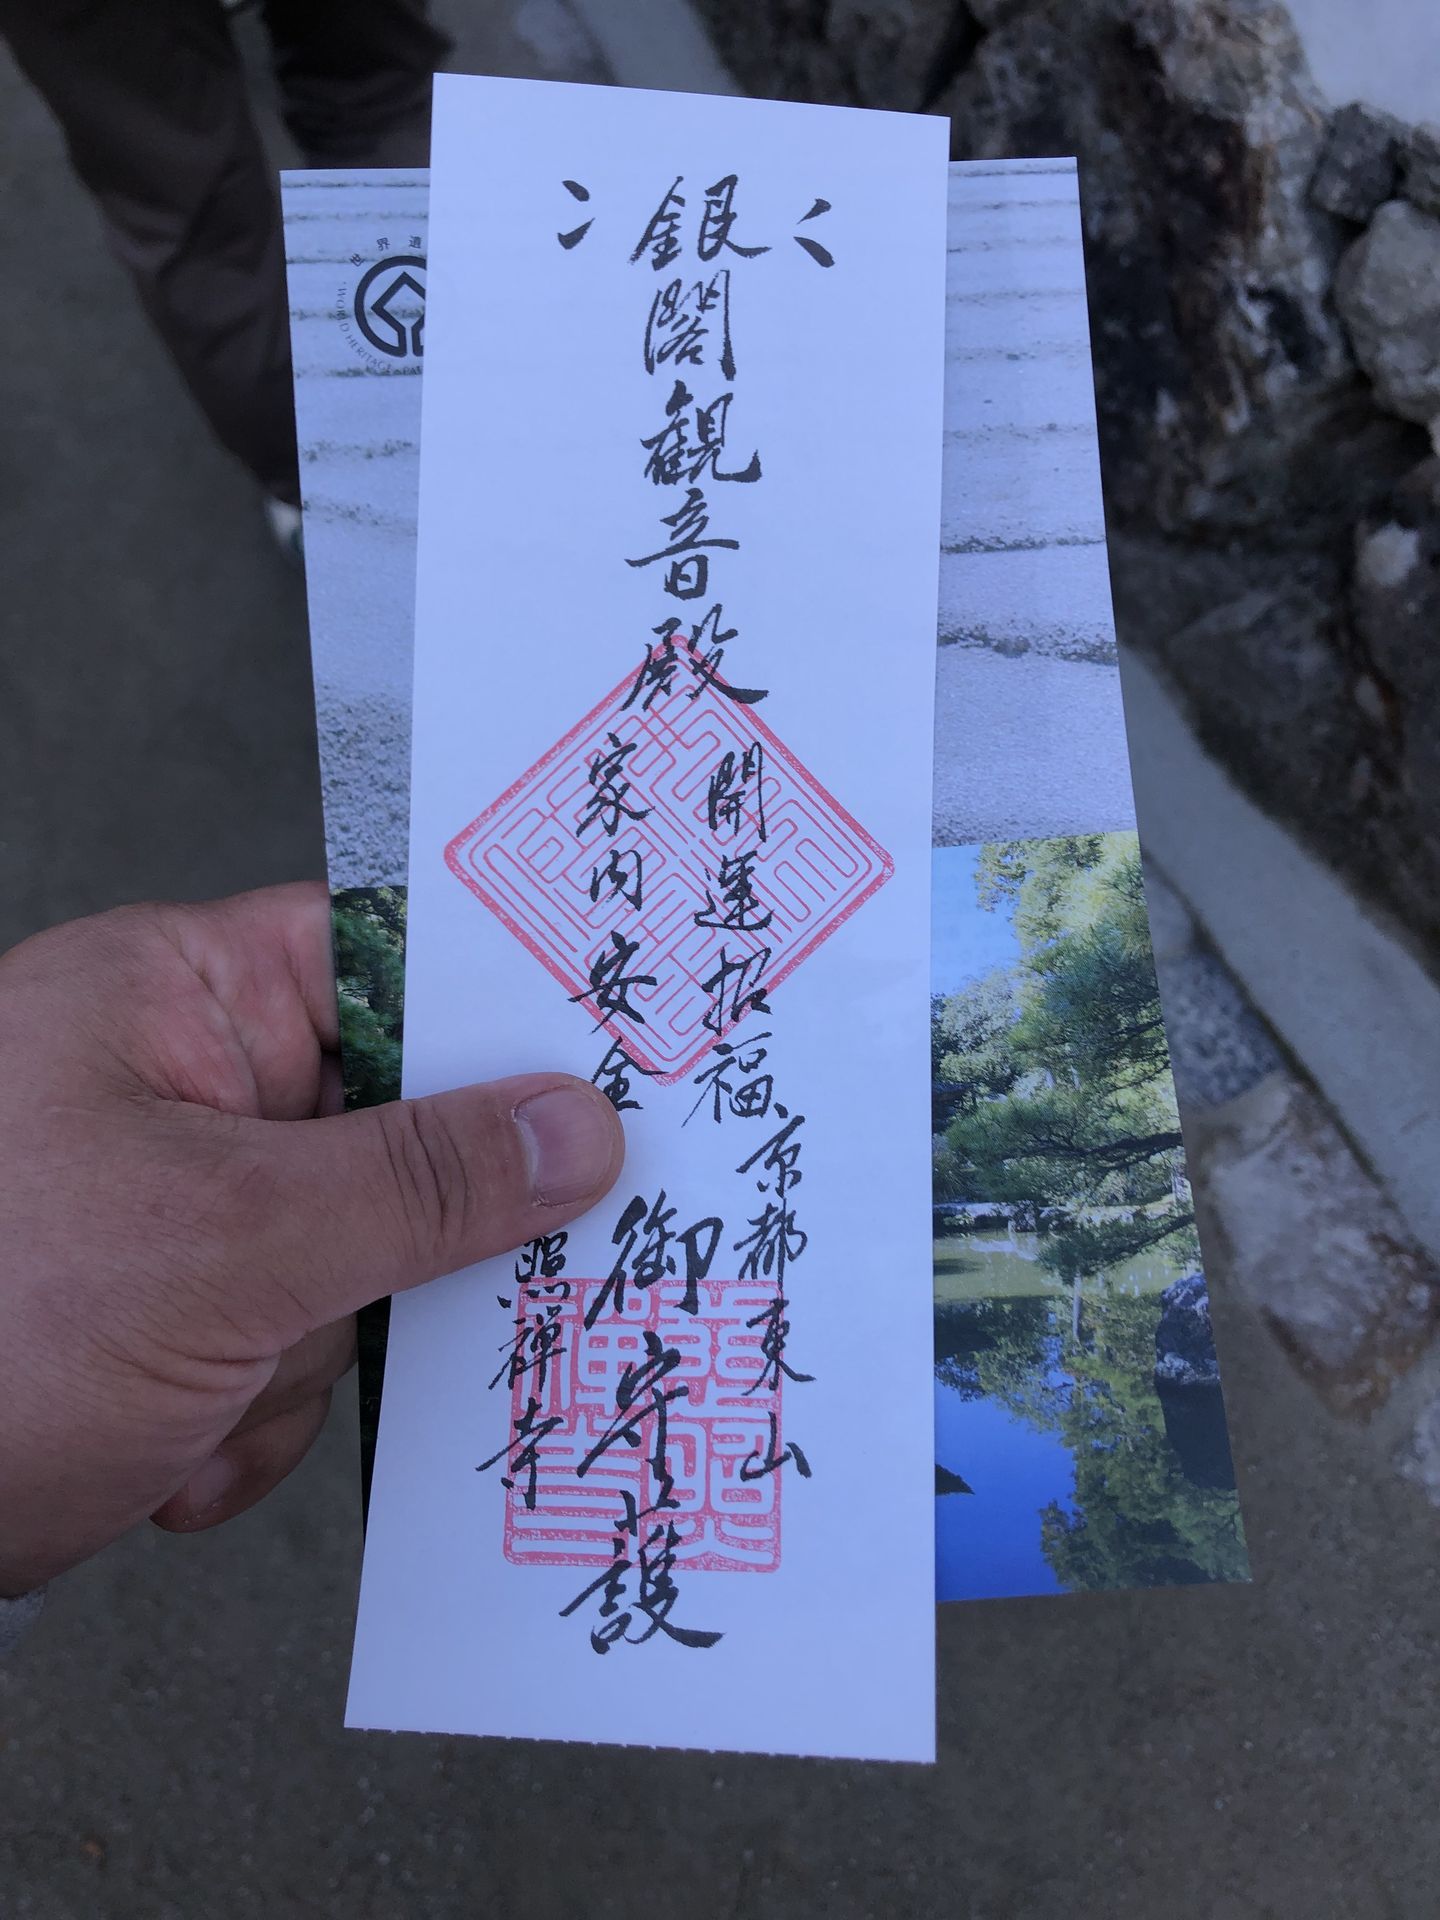 銀閣觀音殿
開運招福
家内安全
京都東山
御守護
照禅寺
世界遺
WORLD HERITAGE PA